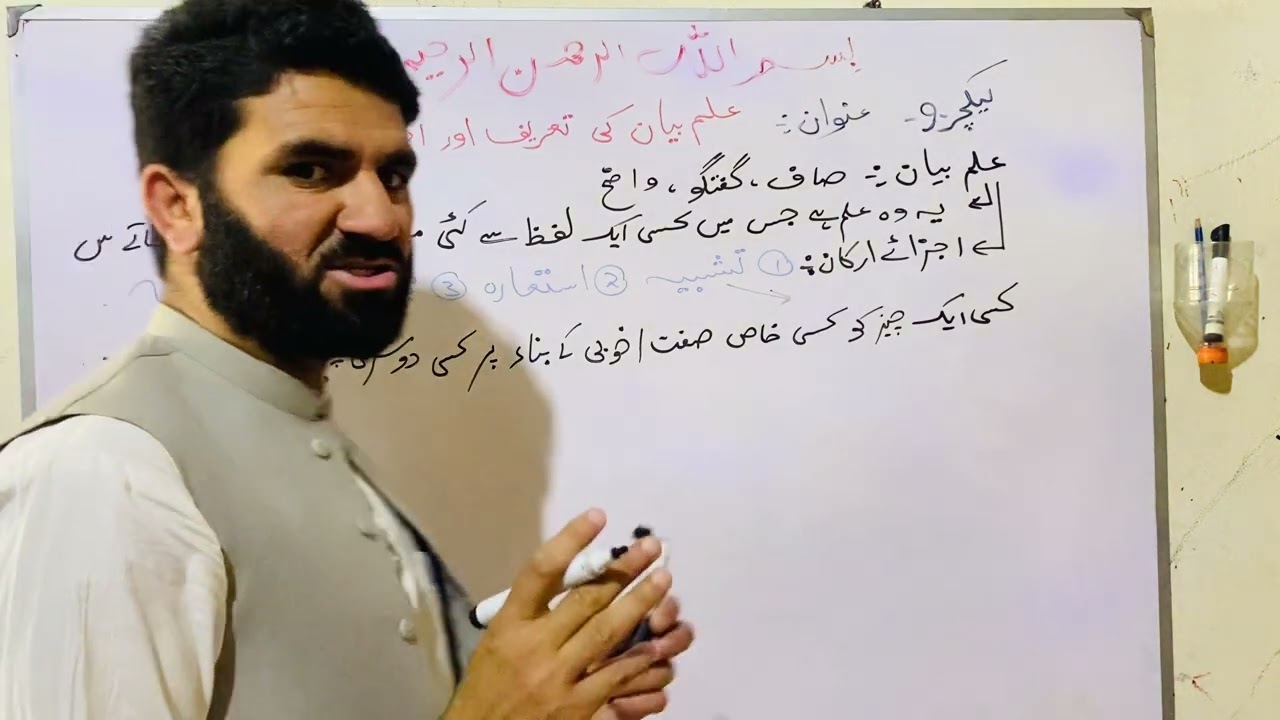 بسم اللہ الرحمن الرحیم
لیکچر 9۔ عنوان:۔ علم بیان کی تعریف اور
علم بیان:۔ صاف، گفتگو، واضح
یہ وہ علم ہے جس میں کسی ایک لفظ سے کئی
اجزائے ارکان:۔ ① تشبیہ ② استعارہ ③
کسی ایک چیز کو کسی خاص صفت / خوبی کے بناء پر کسی